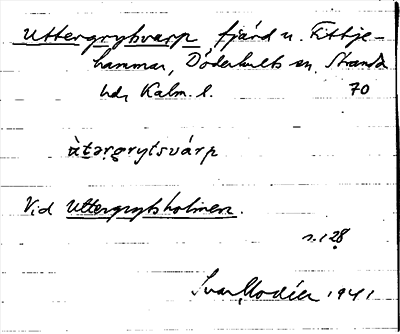 Uttergrytsvarp, fjärd u. Fittje-
hammar, Döderhults sn, Stranda
hd, Kalm. l. 70
ùtərgrytsvárp
Vid Uttergrytsholmen.
s. 128
Ivar Modéer 1941